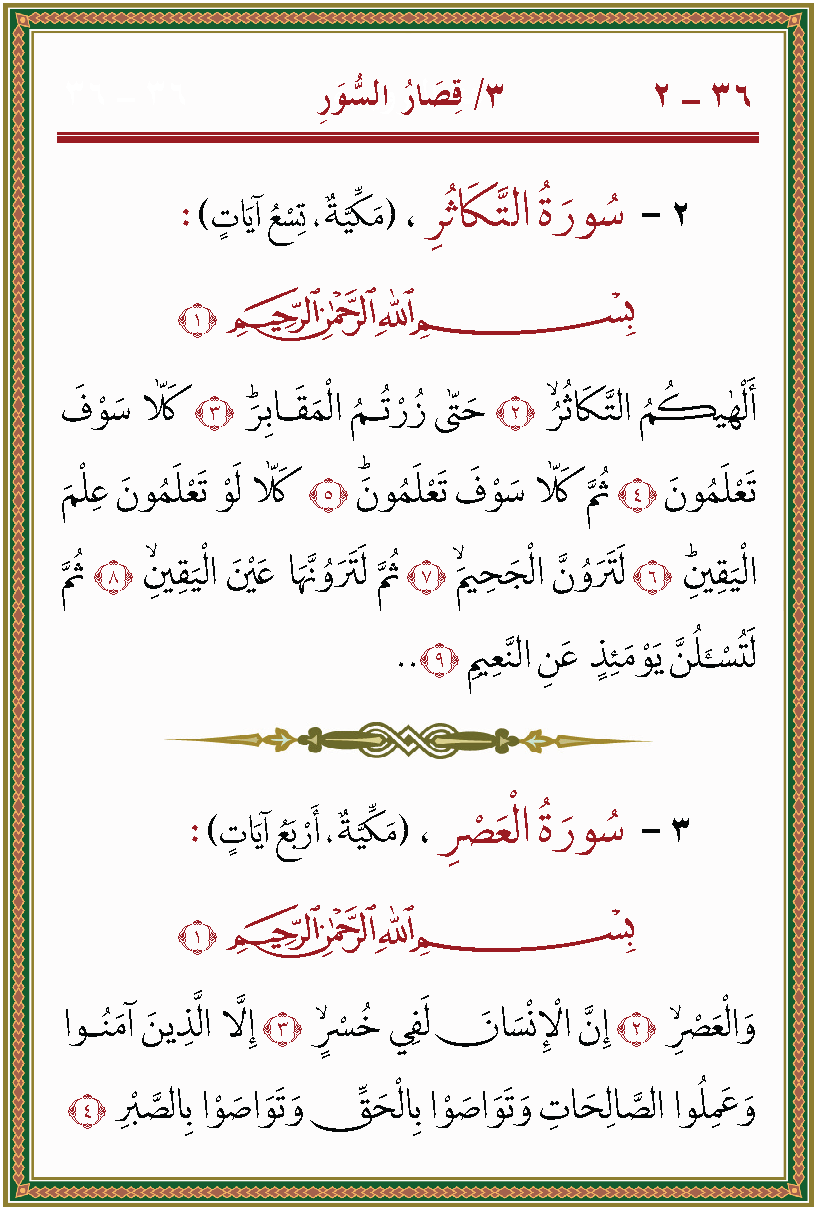 ٣٦ – ٢ ٣/ قِصَارُ السُّوَرِ
٢ - سُورَةُ التَّكَاثُرِ ، (مَكِّيَّةٌ، تِسْعُ آيَاتٍ) :
بِسْمِ ٱللّٰهِ ٱلرَّحْمٰنِ ٱلرَّحِيمِ ﴿١﴾
أَلْهٰيكُمُ التَّكَاثُرُۙ ﴿٢﴾ حَتّٰى زُرْتُمُ الْمَقَابِرَۜ ﴿٣﴾ كَلَّا سَوْفَ
تَعْلَمُونَ ﴿٤﴾ ثُمَّ كَلَّا سَوْفَ تَعْلَمُونَۜ ﴿٥﴾ كَلَّا لَوْ تَعْلَمُونَ عِلْمَ
الْيَقِينِۜ ﴿٦﴾ لَتَرَوُنَّ الْجَحِيمَۙ ﴿٧﴾ ثُمَّ لَتَرَوُنَّهَا عَيْنَ الْيَقِينِۙ ﴿٨﴾ ثُمَّ
لَتُسْـَٔلُنَّ يَوْمَئِذٍ عَنِ النَّعِيمِ ﴿٩﴾..
٣ - سُورَةُ الْعَصْرِ ، (مَكِّيَّةٌ، أَرْبَعُ آيَاتٍ) :
بِسْمِ ٱللّٰهِ ٱلرَّحْمٰنِ ٱلرَّحِيمِ ﴿١﴾
وَالْعَصْرِۙ ﴿٢﴾ إِنَّ الْإِنْسَانَ لَفِي خُسْرٍۙ ﴿٣﴾ إِلَّا الَّذِينَ آمَنُوا
وَعَمِلُوا الصَّالِحَاتِ وَتَوَاصَوْا بِالْحَقِّ وَتَوَاصَوْا بِالصَّبْرِ ﴿٤﴾